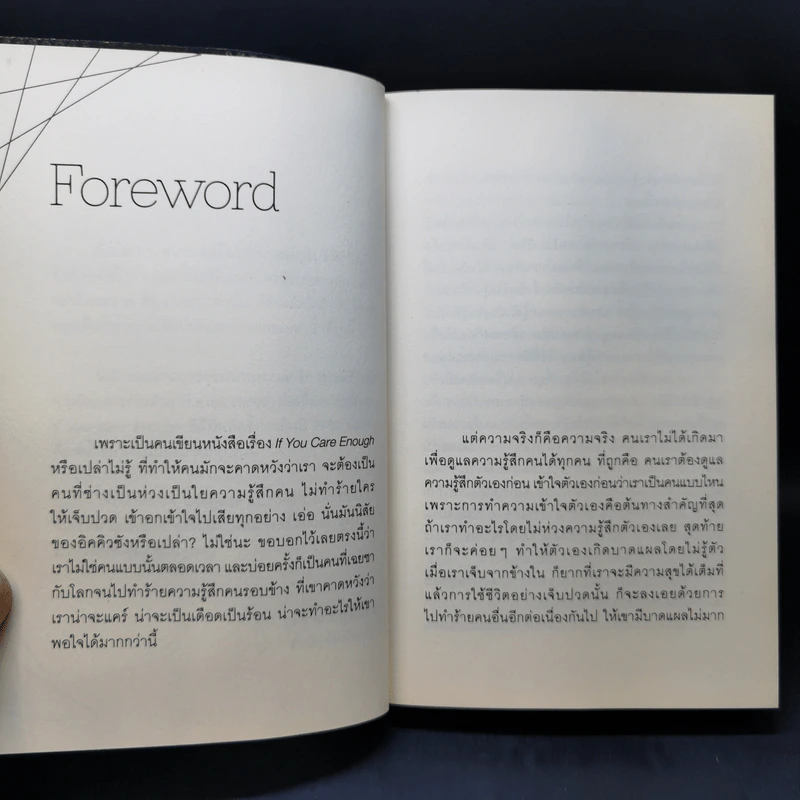 Foreword
เพราะเป็นคนเขียนหนังสือเรื่อง If You Care Enough
หรือเปล่าไม่รู้ ที่ทำให้คนมักจะคาดหวังว่าเรา จะต้องเป็น
คนที่ช่างเป็นห่วงเป็นใยความรู้สึกคน ไม่ทำร้ายใคร
ให้เจ็บปวด เข้าอกเข้าใจไปเสียทุกอย่าง เอ่อ นั่นมันนิสัย
ของอิคคิวซังหรือเปล่า? ไม่ใช่นะ ขอบอกไว้เลยตรงนี้ว่า
เราไม่ใช่คนแบบนั้นตลอดเวลา และบ่อยครั้งก็เป็นคนที่เฉยชา
กับโลกจนไปทำร้ายความรู้สึกคนรอบข้าง ที่เขาคาดหวังว่า
เราน่าจะแคร์ น่าจะเป็นเดือดเป็นร้อน น่าจะทำอะไรให้เขา
พอใจได้มากกว่านี้
แต่ความจริงก็คือความจริง คนเราไม่ได้เกิดมา
เพื่อดูแลความรู้สึกคนได้ทุกคน ที่ถูกคือ คนเราต้องดูแล
ความรู้สึกตัวเองก่อน เข้าใจตัวเองก่อนว่าเราเป็นคนแบบไหน
เพราะการทำความเข้าใจตัวเองคือต้นทางสำคัญที่สุด
ถ้าเราทำอะไรโดยไม่ห่วงความรู้สึกตัวเองเลย สุดท้าย
เราก็จะค่อยๆ ทำให้ตัวเองเกิดบาดแผลโดยไม่รู้ตัว
เมื่อเราเจ็บจากข้างใน ก็ยากที่เราจะมีความสุขได้เต็มที่
แล้วการใช้ชีวิตอย่างเจ็บปวดนั้น ก็จะลงเอยด้วยการ
ไปทำร้ายคนอื่นอีกต่อเนื่องกันไป ให้เขามีบาดแผลไม่มาก